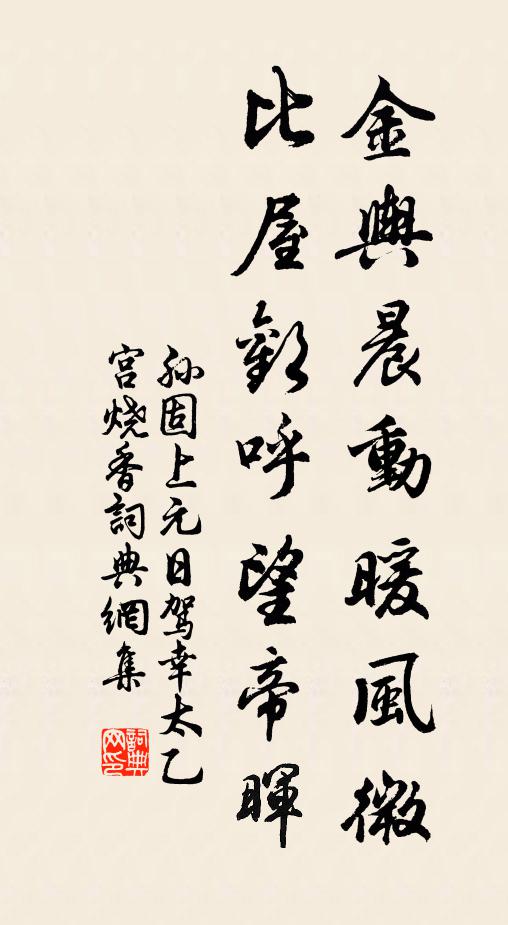 金輿晨動暖風微
比屋歡呼望帝暉
孙固上元日駕幸太乙
宮烧香詞典網集
詞典网印